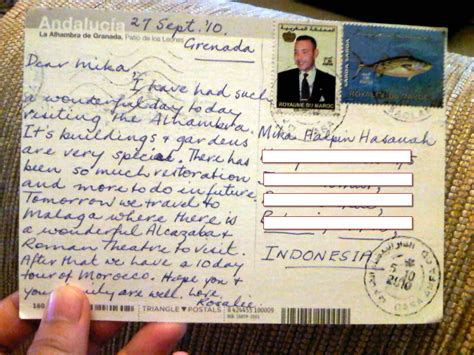 Andalucía
La Alhambra de Granada. Patio de los Leones
27 Sept. '10.
Grenada
Dear Mika,
I have had such
a wonderful day today
visiting the Alhambra.
It's buildings & gardens
are very special. There has
been so much restoration
and more to do in future.
Tomorrow we travel to
Malaga where there is
a wonderful Alcazaba &
Roman Theatre to visit.
After that we have a 10 day
tour of Morocco. Hope you &
your family are well. Love,
Rosalie.
TRIANGLE POSTALS
8 424453 100009
ROYAUME DU MAROC
Mika Halpin Hasanah
INDONESIA
5 10
2010
CASA